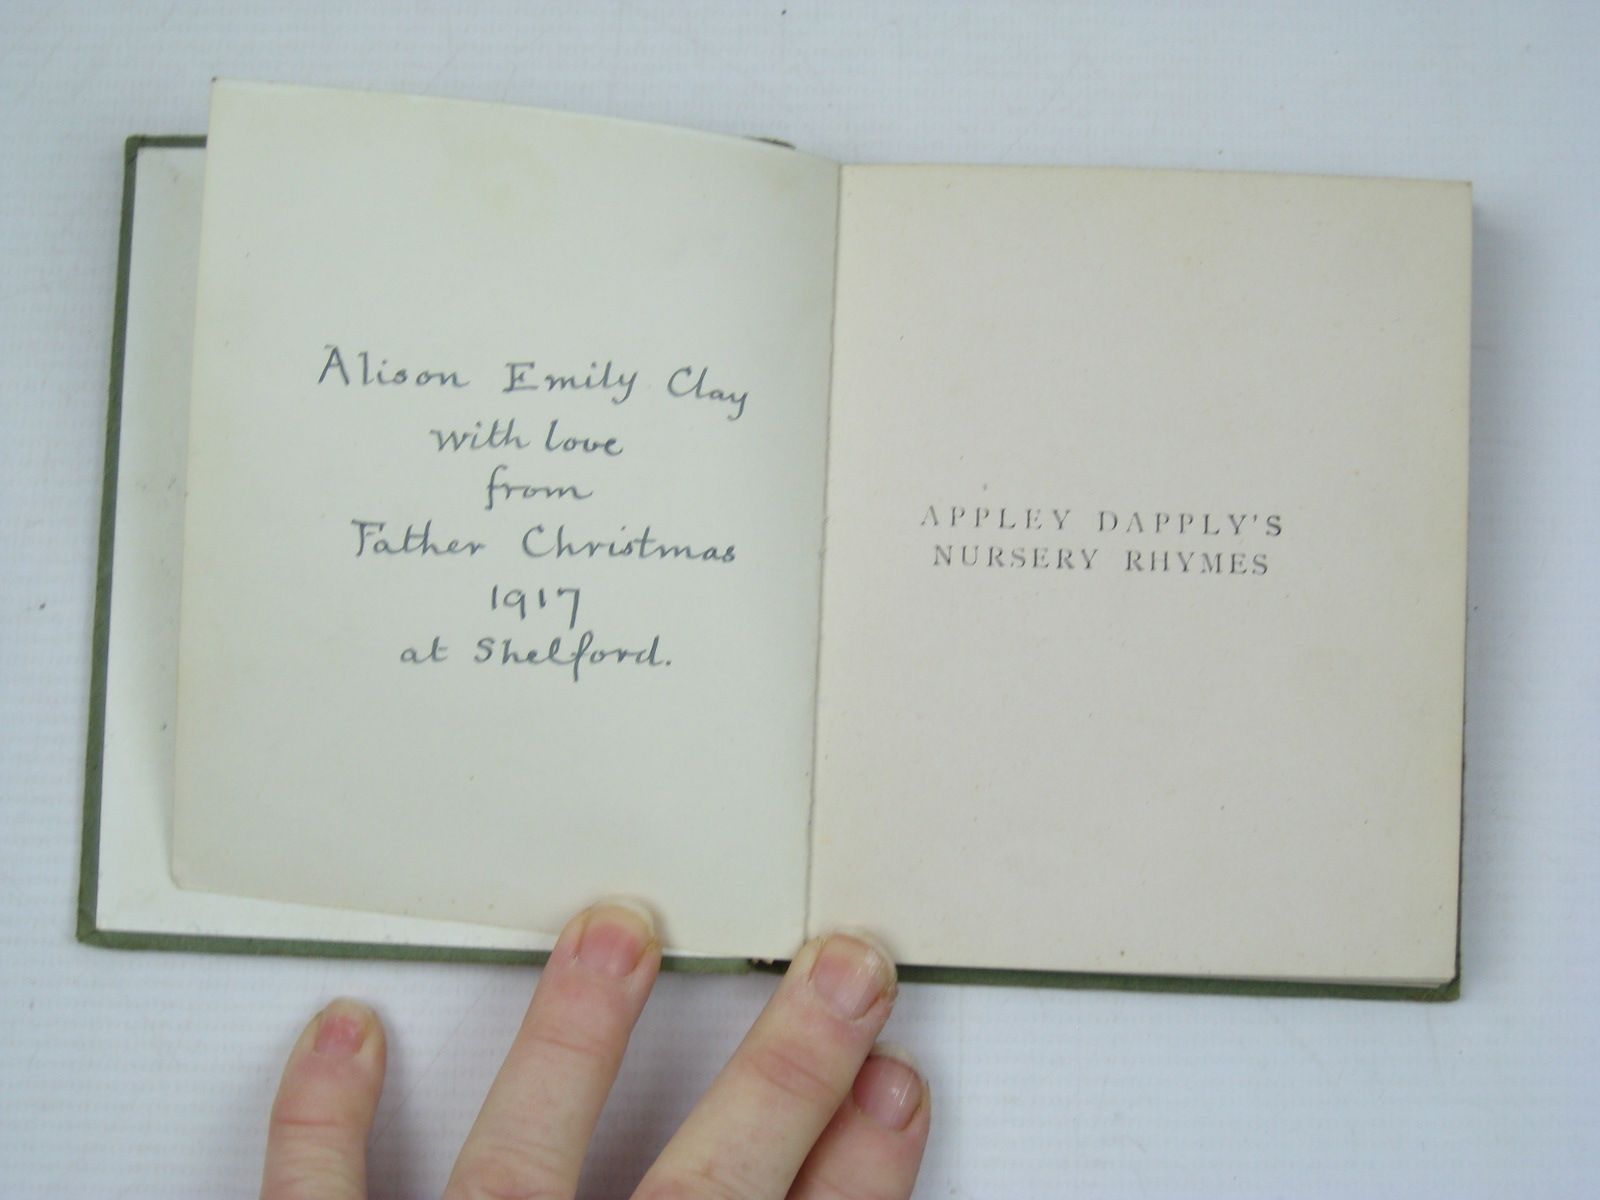 Alison Emily Clay
with love
from
Father Christmas
1917
at Shelford.
APPLEY DAPPLY'S
NURSERY RHYMES